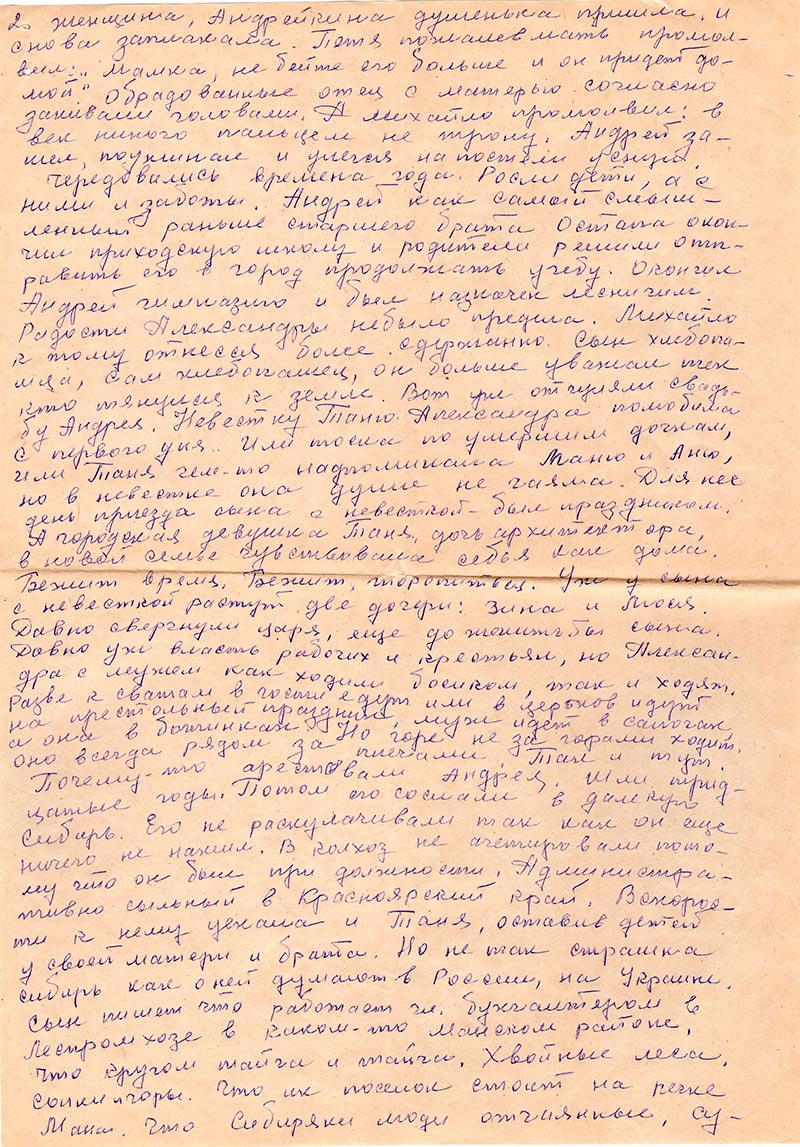 2. женщина, Андрейкина душенька пришла, и
снова заплакала. Петя пожалев мать промол-
вил: „Мамка, не бейте его больше и он придет до-
мой" Обрадованные отец с матерью согласно
закивали головами. А Михайло промолвил: в
век никого пальцем не трону. Андрей за-
шел, поужинал и улегся на постели уснул.
Чередовались времена года. Росли дети, а с
ними и заботы. Андрей как самый смыш-
ленный раньше старшего брата Остапа окон-
чил приходскую школу и родители решили отп-
равить его в город продолжать учебу. Окончил
Андрей гимназию и был назначен лесничим.
Радости Александры небыло предела. Михайло
к тому отнесся более сдержанно. Сын хлебопа-
шца, сам хлебопашец, он больше уважал тех
кто тянулся к земле. Вот уж отгуляли свадь-
бу Андрея. Невестку Таню Александра полюбила
с первого дня.. Или тоска по умершим дочкам,
или Таня чем-то надпоминала Маню и Аню,
но в невестке она души не чаяла. Для нее
день приезда сына с невесткой - был праздником.
А городская девушка Таня, дочь архитектора,
в новой семье чувствовала себья как дома.
Бежит время. Бежит, торопиться. Уж у сына
с невесткой растут две дочери: Зина и Люся.
Давно свергнули царя, еще до женитьбы сына.
Давно уж власть рабочих и крестьян, но Алексан-
дра с мужем как ходили босиком, так и ходят.
Разве к сватам в гости едут или в церьков идут
на престольный праздник, муж идет в сапогах,
а она в ботинках. Но горе не за горами ходит.
Оно всегда рядом за плечами. Так и тут.
Почему-то арестовали Андрея. Шли трид-
цатые годы. Потом его сослали в далекую
Сибирь. Его не раскулачивали так как он еще
ничего не нажил. В колхоз не агетировали пото-
му что он был при должности. Администра-
тивно сыльный в Красноярский край. Вскорос-
ти к нему уехала и Таня, оставив детей
у своей матери и брата. Но не так страшна
Сибирь как о ней думают в России, на Украине.
Сын пишет что работает гл. бухгалтером в
Леспромхозе в каком-то Манском районе,
что кругом тайга и тайга. Хвойные леса,
сопки, горы. Что их поселок стоит на речке
Мана. Что Сибиряки люди отчаянные, су-